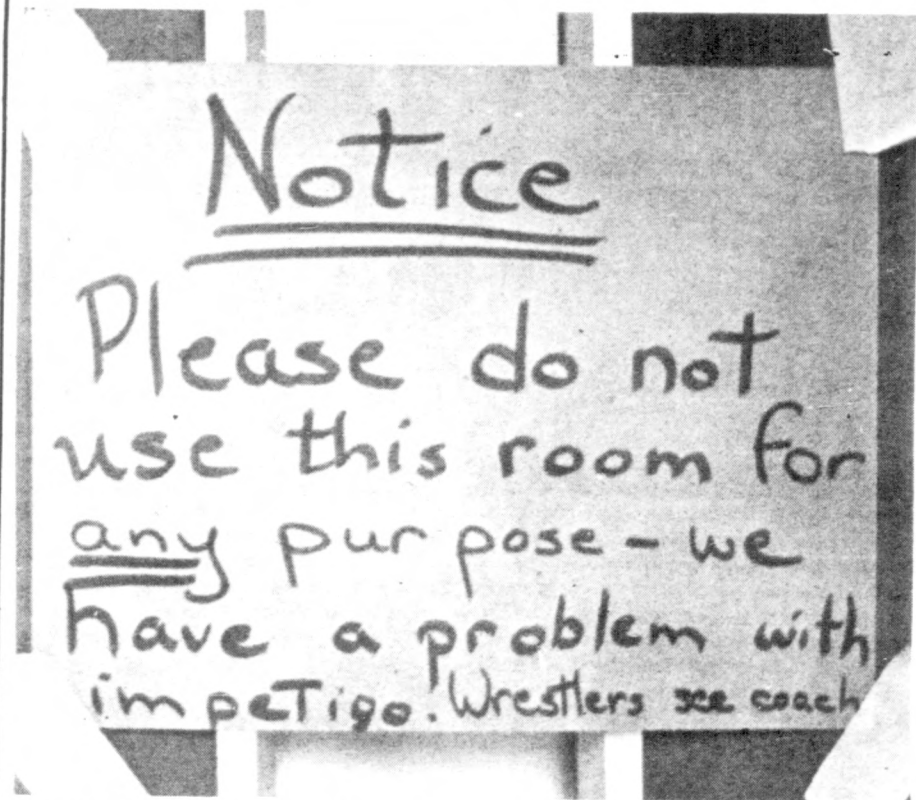 Notice
Please do not
use this room for
any purpose - we
have a problem with
impetigo. Wrestlers see coach